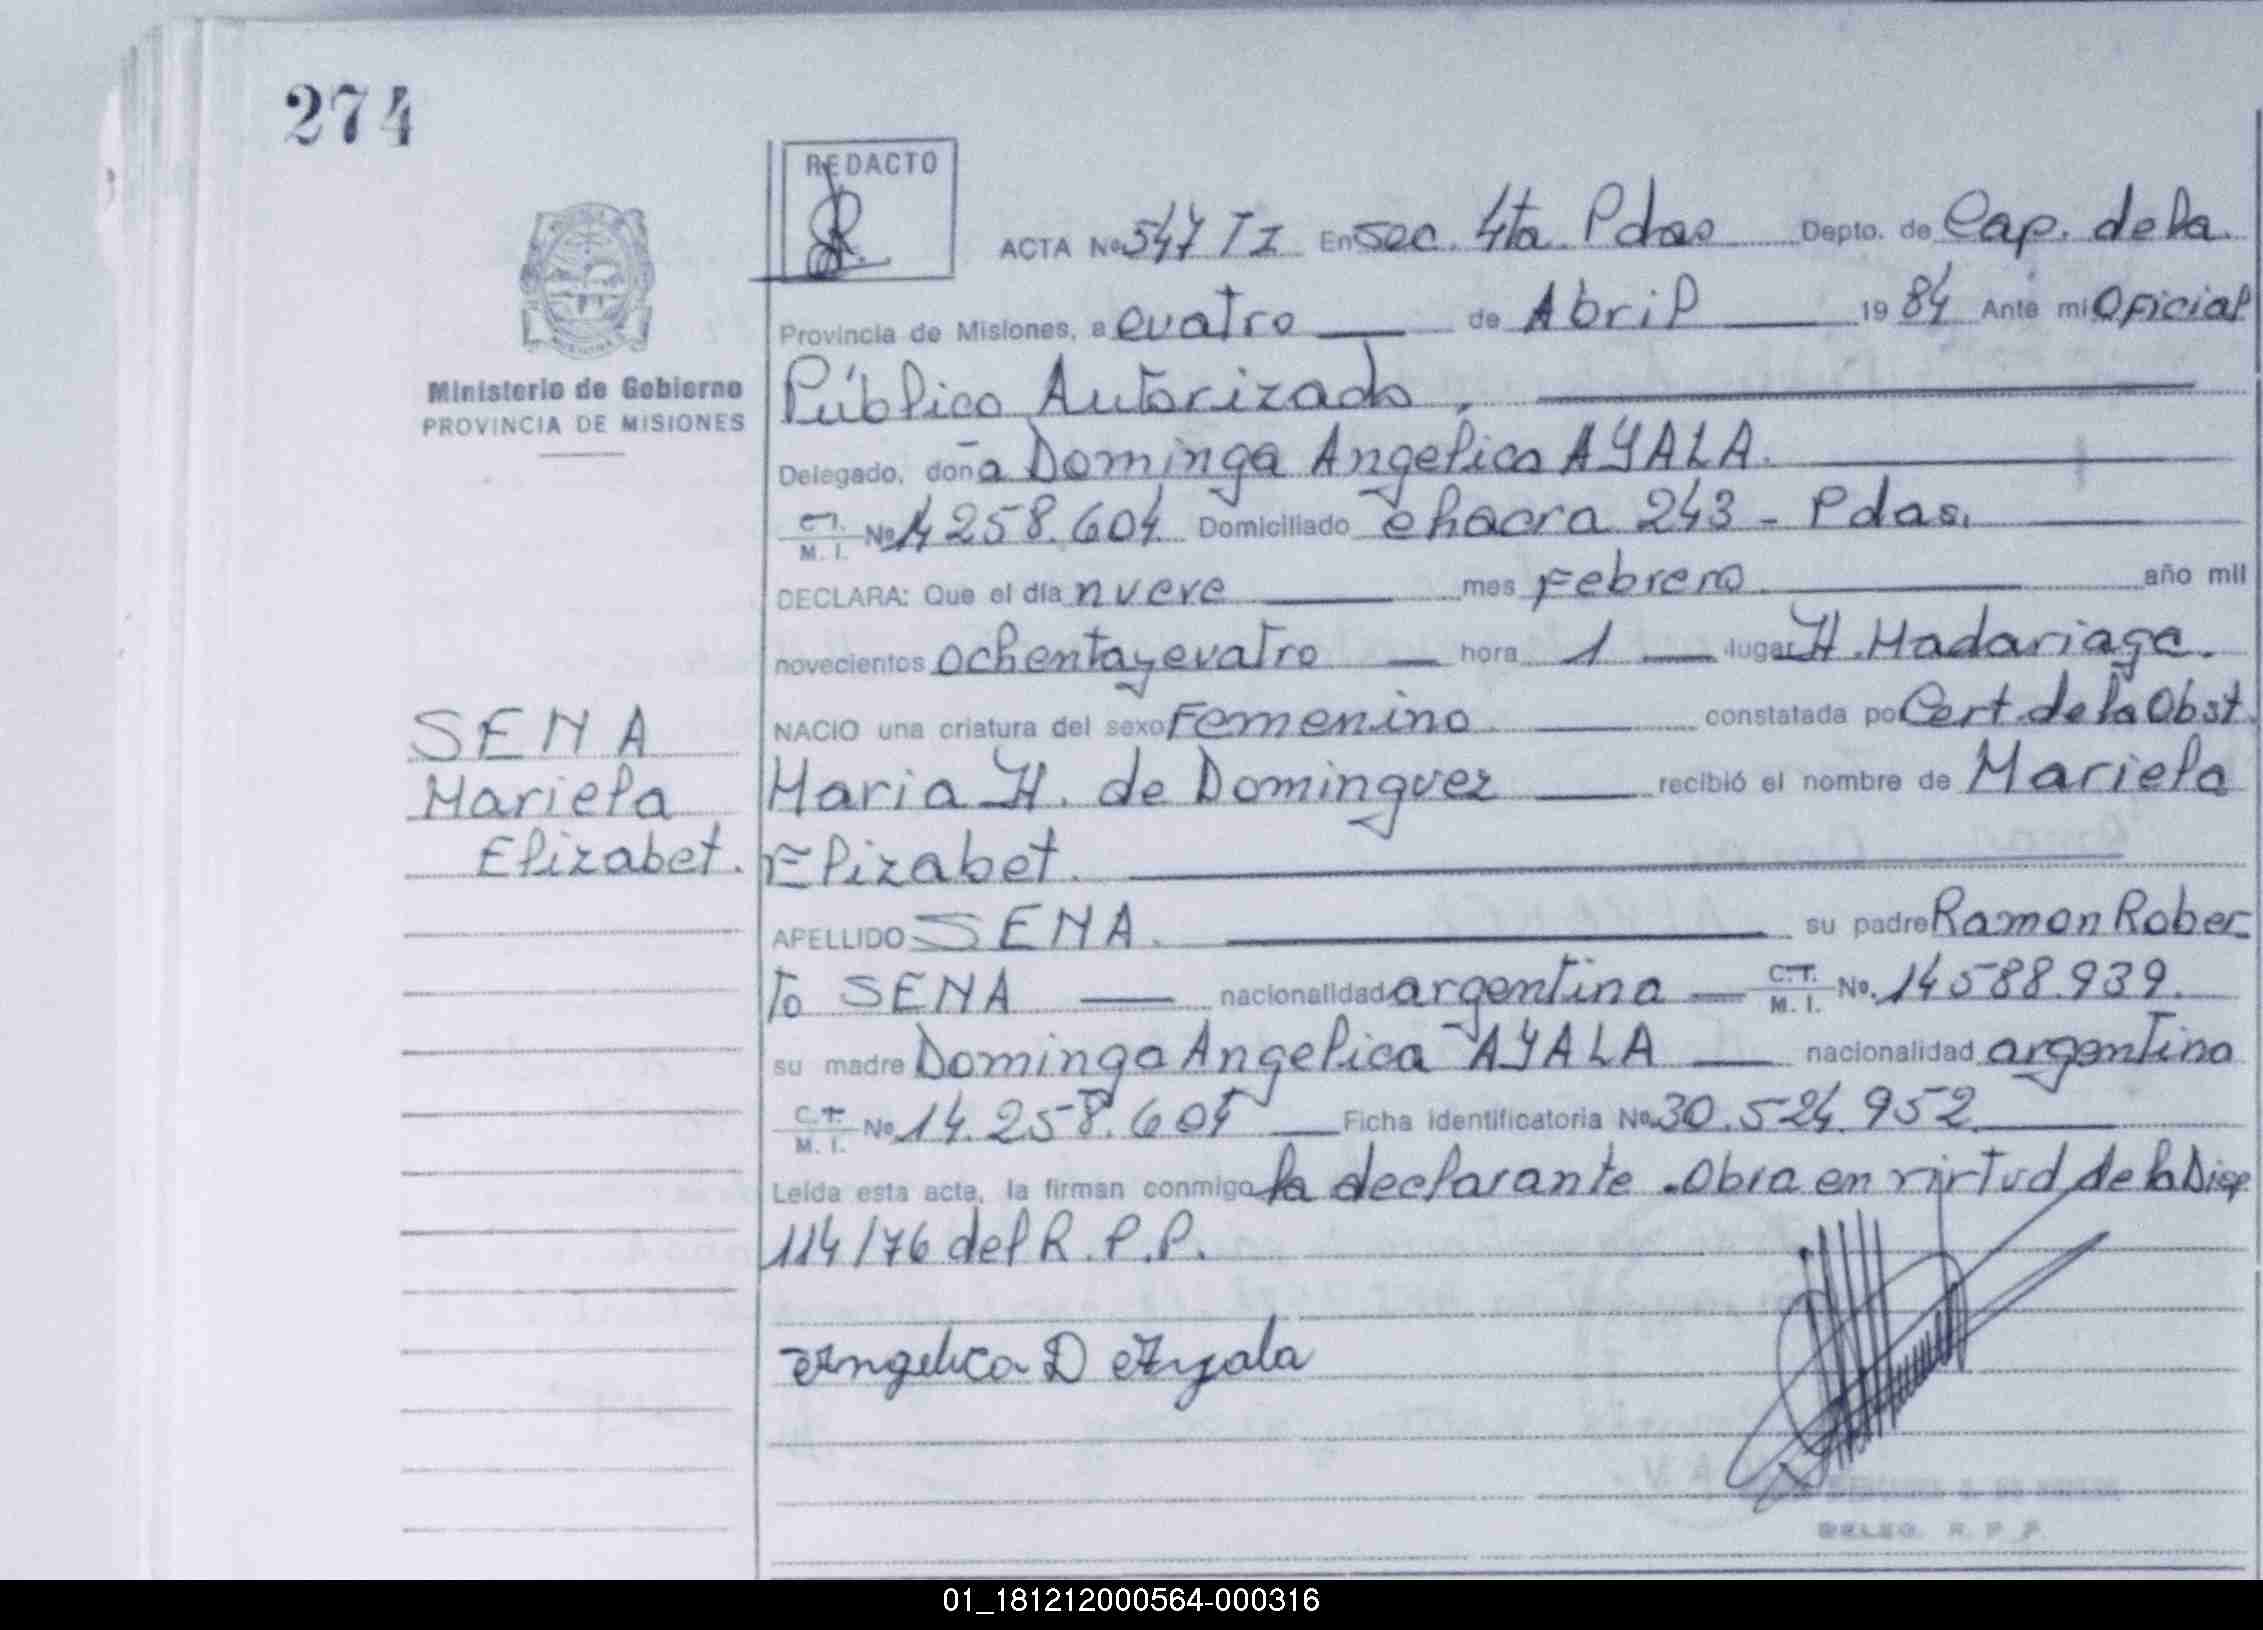 274
REDACTO
ACTA Nº 547 TI En Sec. 4ta Pdas Depto. de Cap. de la
Provincia de Misiones, a cuatro de Abril 1984 Ante mi Oficial
Público Autorizado.
Ministerio de Gobierno
PROVINCIA DE MISIONES
Delegado, doña Dominga Angelica AYALA.
C.I. M. I. Nº 14258.604 Domiciliado chacra 243 - Pdas.
DECLARA: Que el día nueve mes Febrero año mil
novecientos ochenta y cuatro hora 1 lugar H. Madariaga.
NACIO una criatura del sexo Femenino constatada po Cert. de la Obst.
SENA
Mariela
Elizabet.
Maria H. de Dominguez recibió el nombre de Mariela
Elizabet.
APELLIDO SENA. su padre Ramon Rober
to SENA nacionalidad argentina C.I. M. I. Nº. 14588.939.
su madre Dominga Angelica AYALA nacionalidad argentina
C.I. M. I. Nº 14.258.604 Ficha identificatoria Nº 30.524.952
Leída esta acta, la firman conmigo la declarante. Obra en virtud de la Disp
114/76 del R.P.P.
Angelica D Ayala
DELEG. R. P. P.
01_181212000564-000316